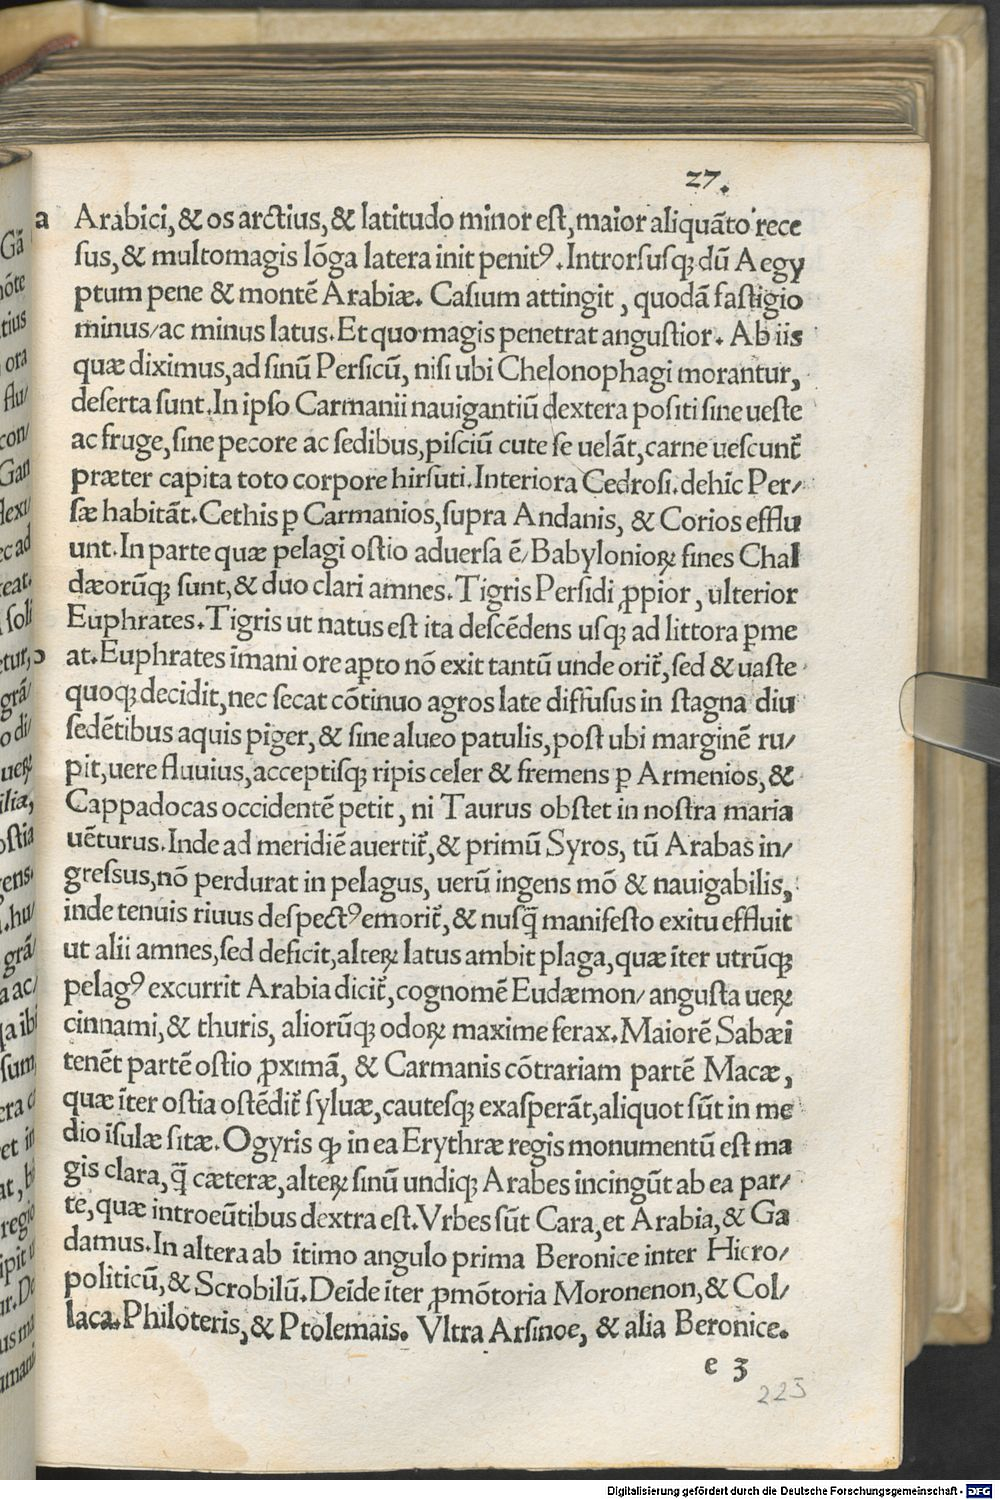 27.
Arabici, & os arctius, & latitudo minor est, maior aliquãto rece
sus, & multomagis lõga latera init penitꝰ. Introrsusqꝫ dũ Aegy
ptum pene & montẽ Arabiæ. Casium attingit, quodã fastigio
minus/ac minus latus. Et quo magis penetrat angustior. Ab iis
quæ diximus, ad sinũ Persicũ, nisi ubi Chelonophagi morantur,
deserta sunt. In ipso Carmanii nauigantiũ dextera positi sine ueste
ac fruge, sine pecore ac sedibus, pisciũ cute se uelãt, carne uescunt᷑
præter capita toto corpore hirsuti. Interiora Cedrosi. dehĩc Per/
sæ habitãt. Cethis ꝑ Carmanios, supra Andanis, & Corios efflu
unt. In parte quæ pelagi ostio aduersa ẽ/Babylonioꝝ fines Chal
dæorũqꝫ sunt, & duo clari amnes. Tigris Persidi ꝓpior, ulterior
Euphrates. Tigris ut natus est ita descẽdens usqꝫ ad littora ꝑme
at. Euphrates ĩmani ore aꝑto nõ exit tantũ unde orit᷑, sed & uaste
quoqꝫ decidit, nec secat cõtinuo agros late diffusus in stagna diu
sedẽtibus aquis piger, & sine alueo patulis, post ubi marginẽ ru/
pit, uere fluuius, acceptisqꝫ ripis celer & fremens ꝑ Armenios, &
Cappadocas occidentẽ petit, ni Taurus obstet in nostra maria
uẽturus. Inde ad meridiẽ auertit᷑, & primũ Syros, tũ Arabas in/
gressus, nõ perdurat in pelagus, uerũ ingens mõ & nauigabilis,
inde tenuis riuus despectꝰ emorit᷑, & nusq̃ manifesto exitu effluit
ut alii amnes, sed deficit, alteꝝ latus ambit plaga, quæ ĩter utrũqꝫ
pelagꝰ excurrit Arabia dicit᷑, cognomẽ Eudæmon/angusta ueꝝ
cinnami, & thuris, aliorũqꝫ odoꝝ maxime ferax. Maiorẽ Sabæi
tenẽt partẽ ostio ꝓximã, & Carmanis cõtrariam partẽ Macæ,
quæ ĩter ostia ostẽdit᷑ syluæ, cautesqꝫ exasperãt, aliquot sũt in me
dio ĩsulæ sitæ. Ogyris qꝫ in ea Erythræ regis monumentũ est ma
gis clara, q̃ cæteræ, alteꝝ sinũ undiqꝫ Arabes incingũt ab ea par/
te, quæ introeũtibus dextra est. Vrbes sũt Cara, et Arabia, & Ga
damus. In altera ab ĩtimo angulo prima Beronice inter Hiero/
politicũ, & Scrobilũ. Deĩde ĩter ꝓmõtoria Moronenon, & Col/
laca. Philoteris, & Ptolemais. Vltra Arsinoe, & alia Beronice.
e 3
225
Digitalisierung gefördert durch die Deutsche Forschungsgemeinschaft - DFG